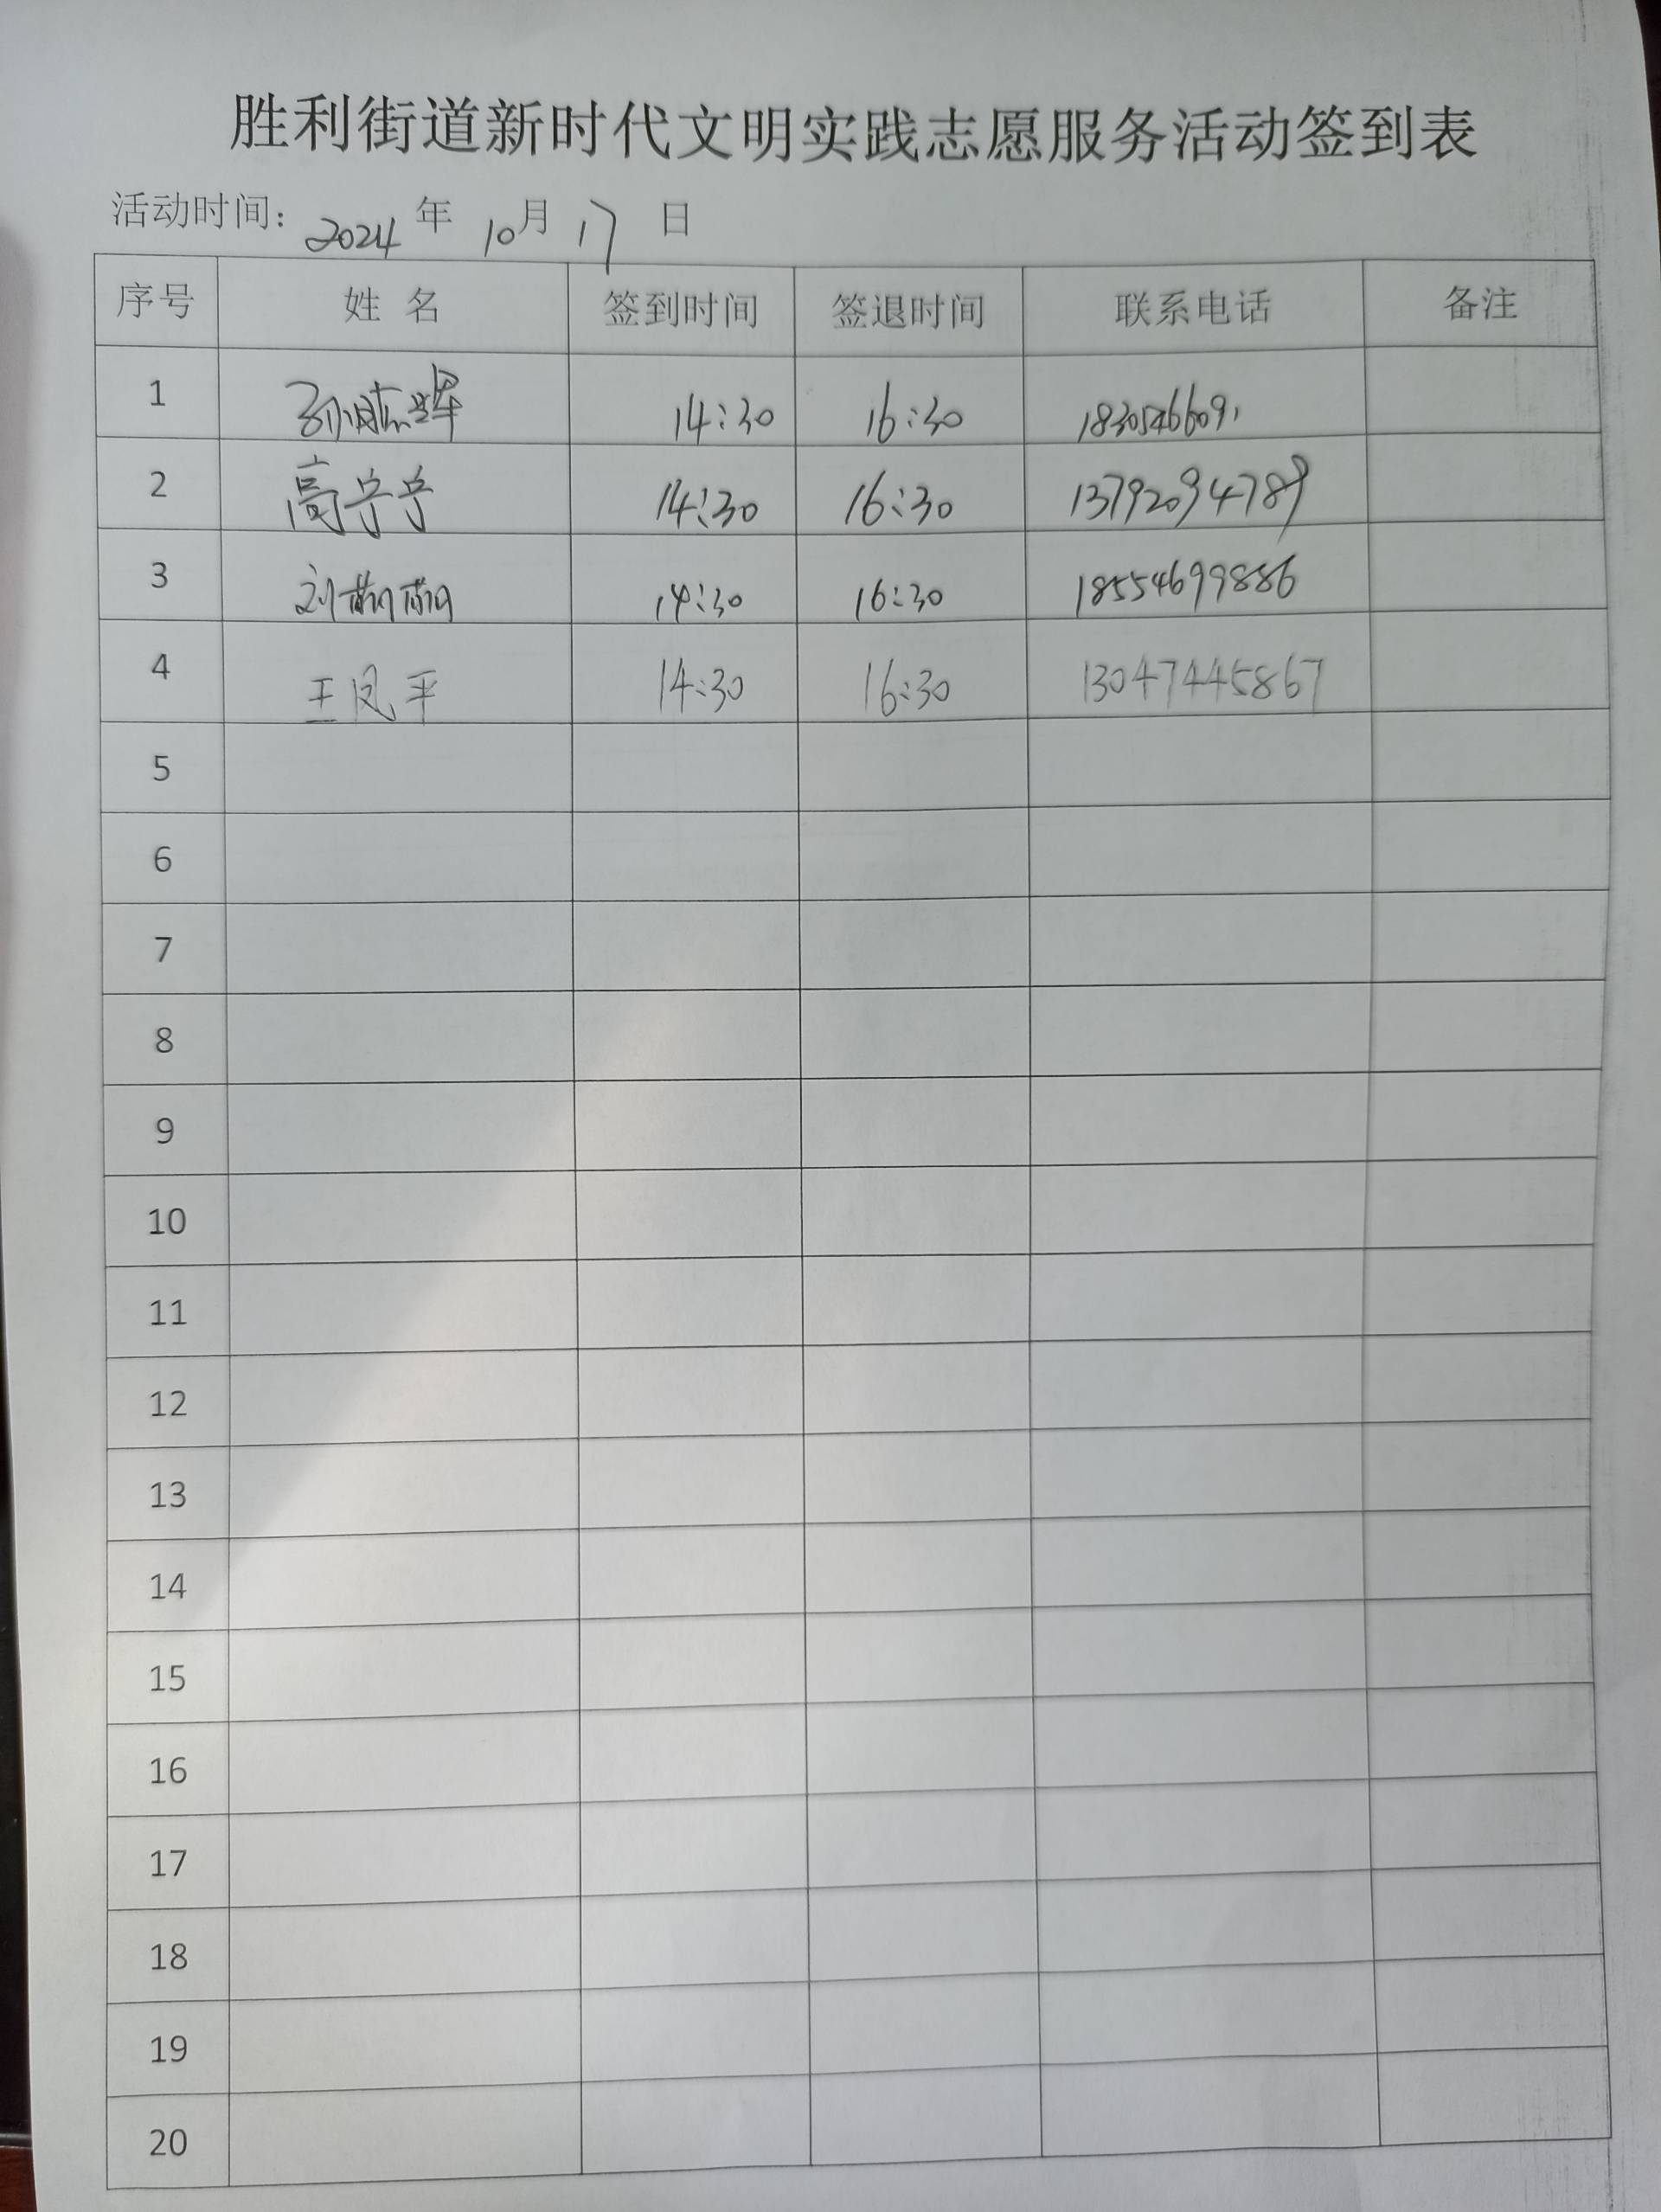 胜利街道新时代文明实践志愿服务活动签到表
活动时间：2024 年 10 月 17 日
序号 姓 名 签到时间 签退时间 联系电话 备注
1 14:30 16:30 18305466091
2 高宁宁 14:30 16:30 13792094789
3 刘萌萌 14:30 16:30 18554699886
4 王凤平 14:30 16:30 13047445867
5
6
7
8
9
10
11
12
13
14
15
16
17
18
19
20